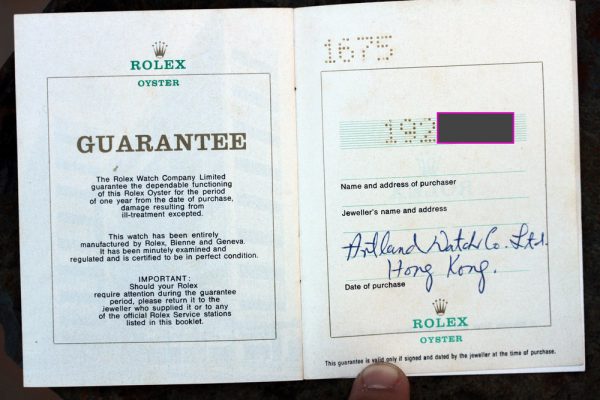 ROLEX
OYSTER
GUARANTEE
The Rolex Watch Company Limited
guarantee the dependable functioning
of this Rolex Oyster for the period
of one year from the date of purchase,
damage resulting from
ill-treatment excepted.
This watch has been entirely
manufactured by Rolex, Bienne and Geneva.
It has been minutely examined and
regulated and is certified to be in perfect condition.
IMPORTANT:
Should your Rolex
require attention during the guarantee
period, please return it to the
jeweller who supplied it or to any
of the official Rolex Service stations
listed in this booklet.
1675
192
Name and address of purchaser
Jeweller's name and address
Artland Watch Co. Ltd.
Hong Kong.
Date of purchase
ROLEX
OYSTER
This guarantee is valid only if signed and dated by the jeweller at the time of purchase.